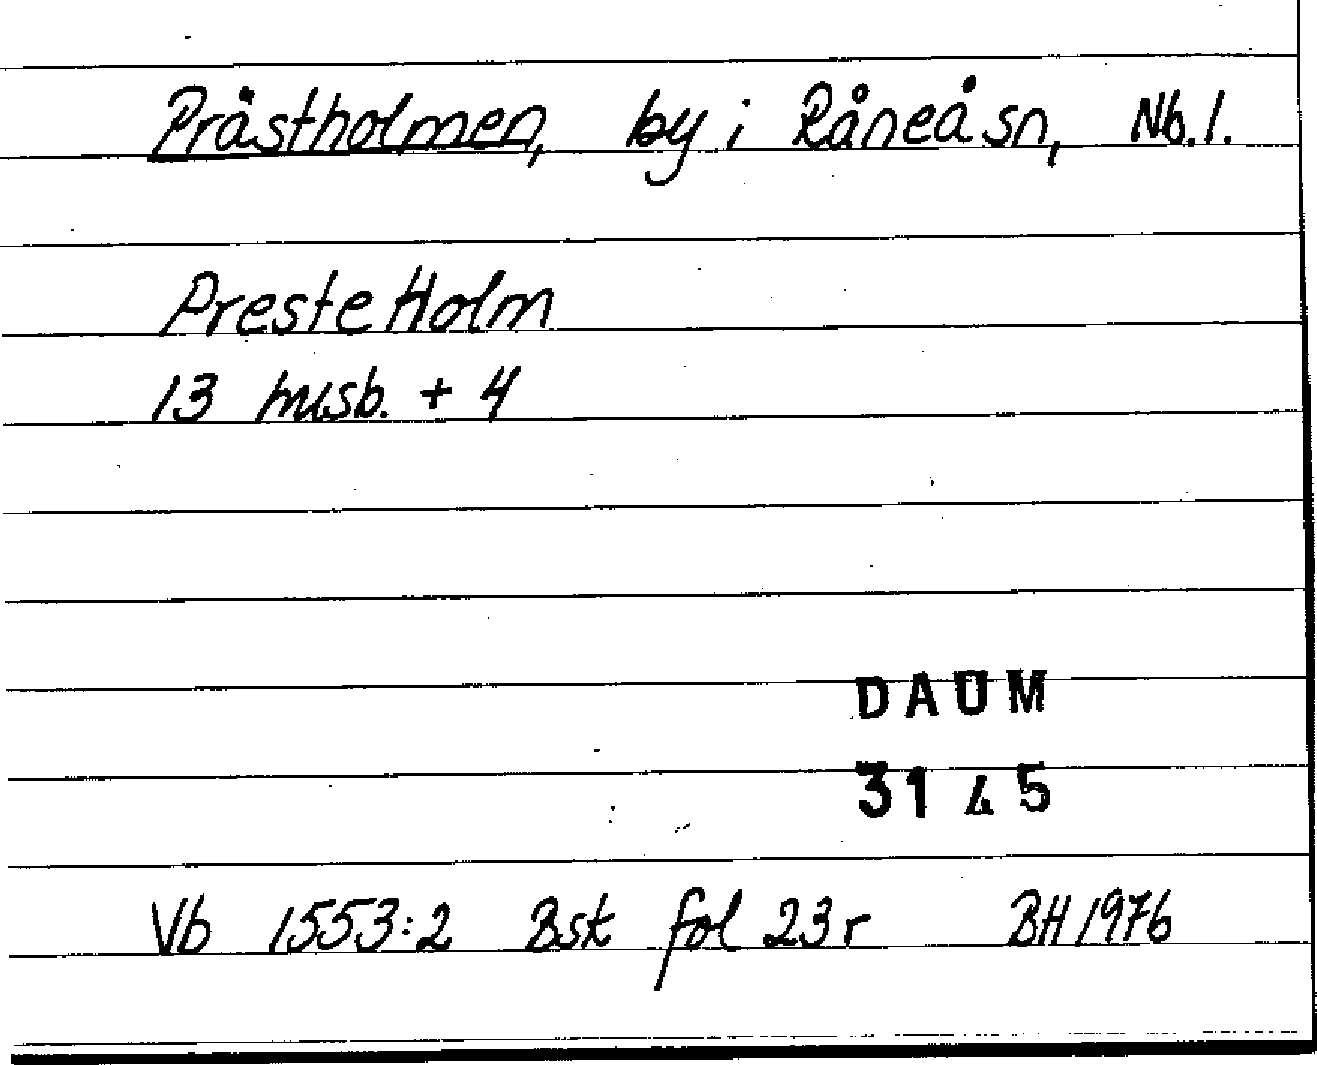 Prästholmen, by i Råneå sn, Nb. l.
Preste Holm
13 husb. + 4
DAUM
3145
Vb 1553:2 Bsk fol 23 r BH 1976